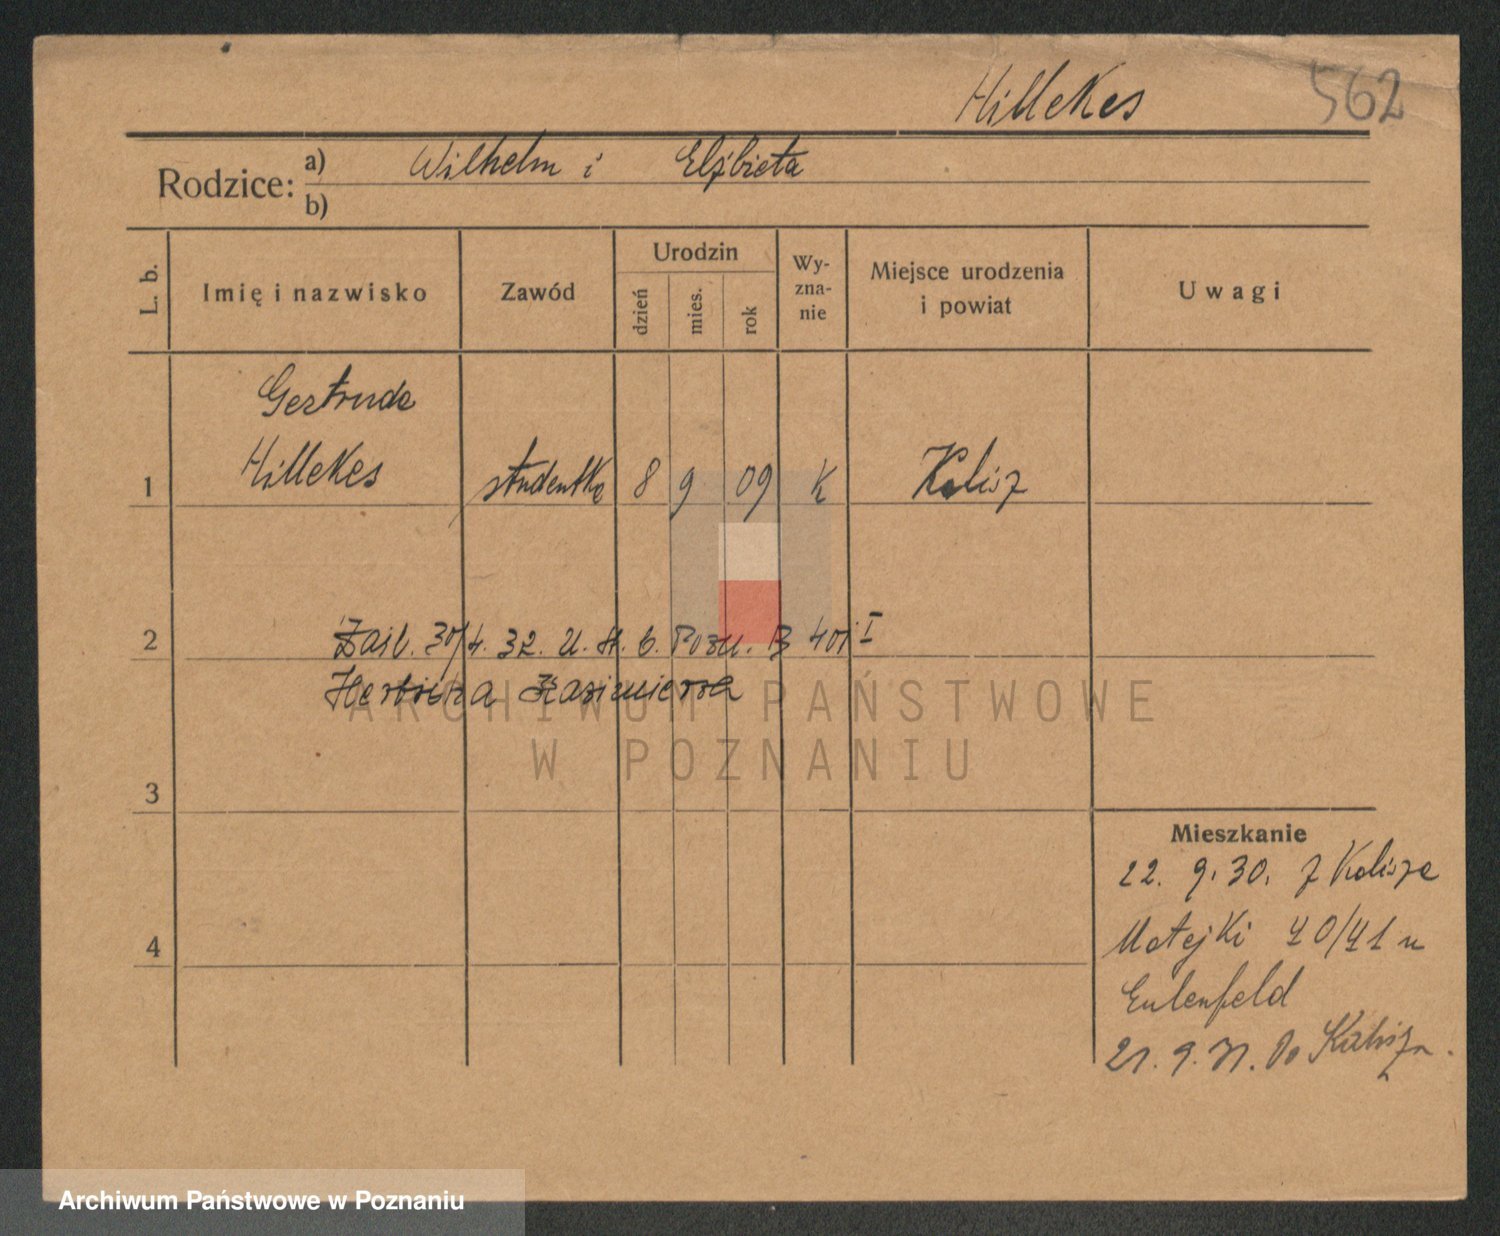 Hillekes 562
Rodzice: a) Wilhelm i Elżbieta
b)
L. b. Imię i nazwisko Zawód Urodzin dzień mies. rok Wy-zna-nie Miejsce urodzenia i powiat Uwagi
Gertruda
1 Hillekes studentka 8 9 09 k Kalisz
2 30/4. 32. U. Pozn. B 401 I
Kazimierza
3
4
Mieszkanie
22. 9. 30. z Kalisza
Matejki 40/41 u
Eulenfeld
21. 9. 31. Do Kalisza.
ARCHIWUM PAŃSTWOWE
W POZNANIU
Archiwum Państwowe w Poznaniu